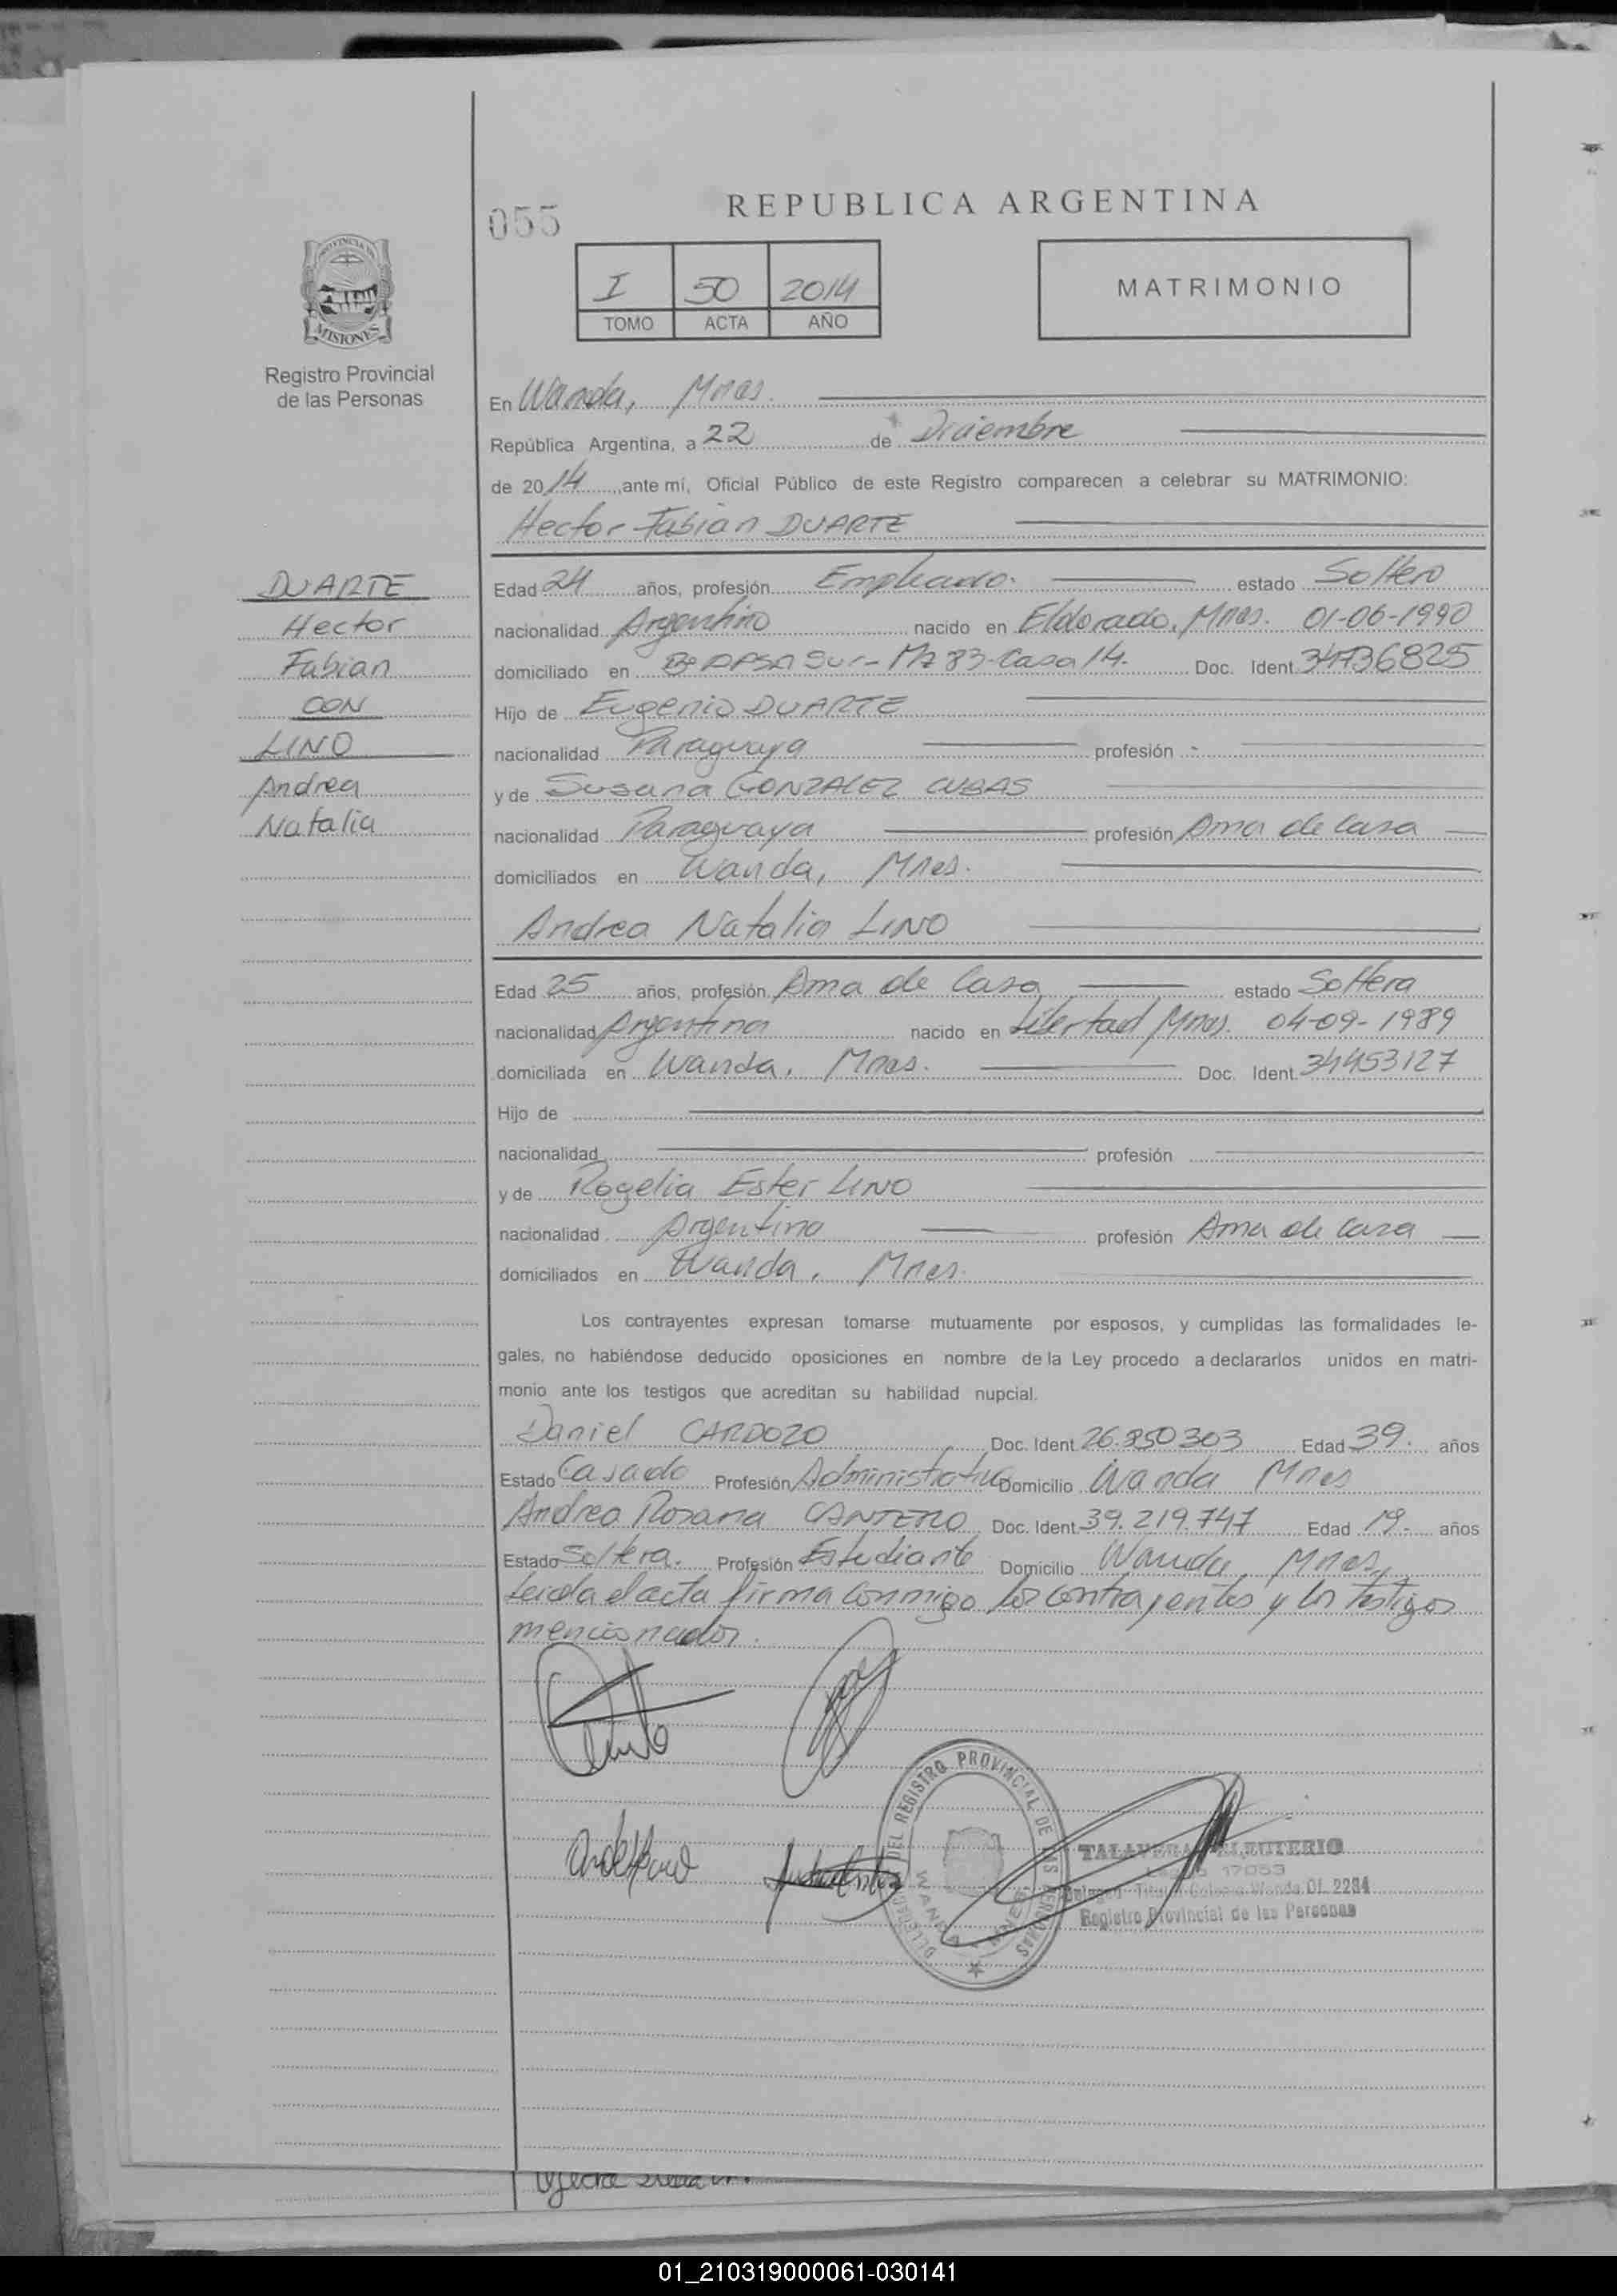 REPUBLICA ARGENTINA
055
I 50 2014
TOMO ACTA AÑO
MATRIMONIO
MISIONES
Registro Provincial
de las Personas
En Wanda, Mnes.
República Argentina, a 22 de Diciembre
de 2014, ante mí, Oficial Público de este Registro comparecen a celebrar su MATRIMONIO:
Hector Fabian DUARTE
DUARTE
Hector
Fabian
CON
LINO
Andrea
Natalia
Edad 24 años, profesión Empleado. estado Soltero
nacionalidad Argentino nacido en Eldorado, Mnes. 01-06-1990
domiciliado en Sur - Mz 83 - Casa 14. Doc. Ident.
Hijo de Eugenio DUARTE
nacionalidad Paraguaya profesión -
y de Susana GONZALEZ CUBAS
nacionalidad Paraguaya profesión Ama de Casa
domiciliados en Wanda, Mnes.
Andrea Natalia LINO
Edad 25 años, profesión Ama de Casa estado Soltera
nacionalidad Argentina nacido en Libertad Mnes. 04-09-1989
domiciliada en Wanda, Mnes. Doc. Ident. 34453127
Hijo de
nacionalidad profesión
y de Rogelia Ester LINO
nacionalidad Argentina profesión Ama de Casa
domiciliados en Wanda, Mnes.
Los contrayentes expresan tomarse mutuamente por esposos, y cumplidas las formalidades le-
gales, no habiéndose deducido oposiciones en nombre de la Ley procedo a declararlos unidos en matri-
monio ante los testigos que acreditan su habilidad nupcial.
Daniel CARDOZO Doc. Ident. 26.850303 Edad 39. años
Estado Casado Profesión Administrativo Domicilio Wanda Mnes
Andrea Rosana CANTERO Doc. Ident. 39.219.747 Edad 19. años
Estado Soltera. Profesión Estudiante Domicilio Wanda, Mnes,
Leida el acta firma conmigo los contrayentes y los testigos
mencionados.
DEL REGISTRO PROVINCIAL DE LAS PERSONAS
WANDA
TALAVERA ELEUTERIO
17053
Titular Colonia Wanda Of. 2284
Registro Provincial de las Personas
01_210319000061-030141